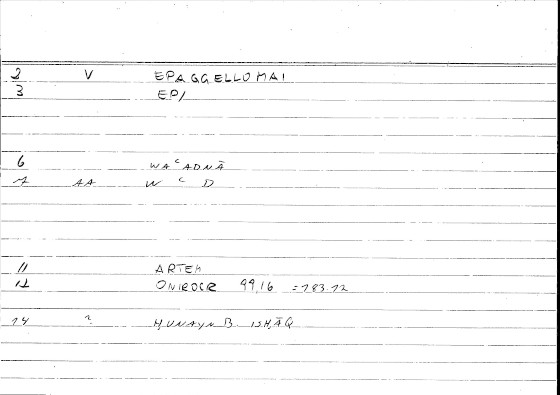 2 V EPAGGELLOMAI
3 EPI
6 WAᶜADNĀ
7 AA W ᶜ D
11 ARTEM
12 ONIROCR 99,16 = 183.12
14 ? ḤUNAYN B. ISḤĀQ